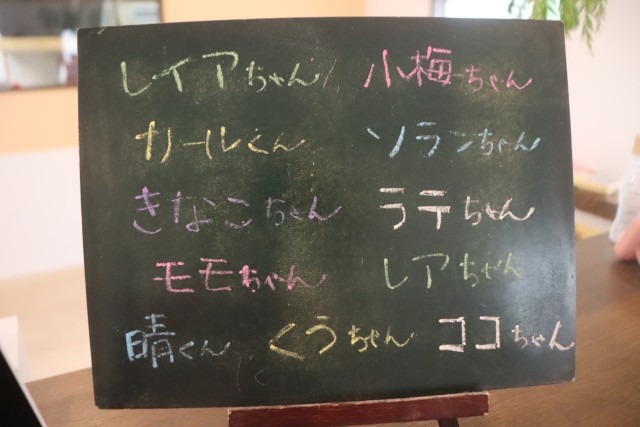 レイアちゃん 小梅ちゃん
カールくん ソランちゃん
きなこちゃん ラテちゃん
モモちゃん レアちゃん
晴くん くうちゃん ココちゃん